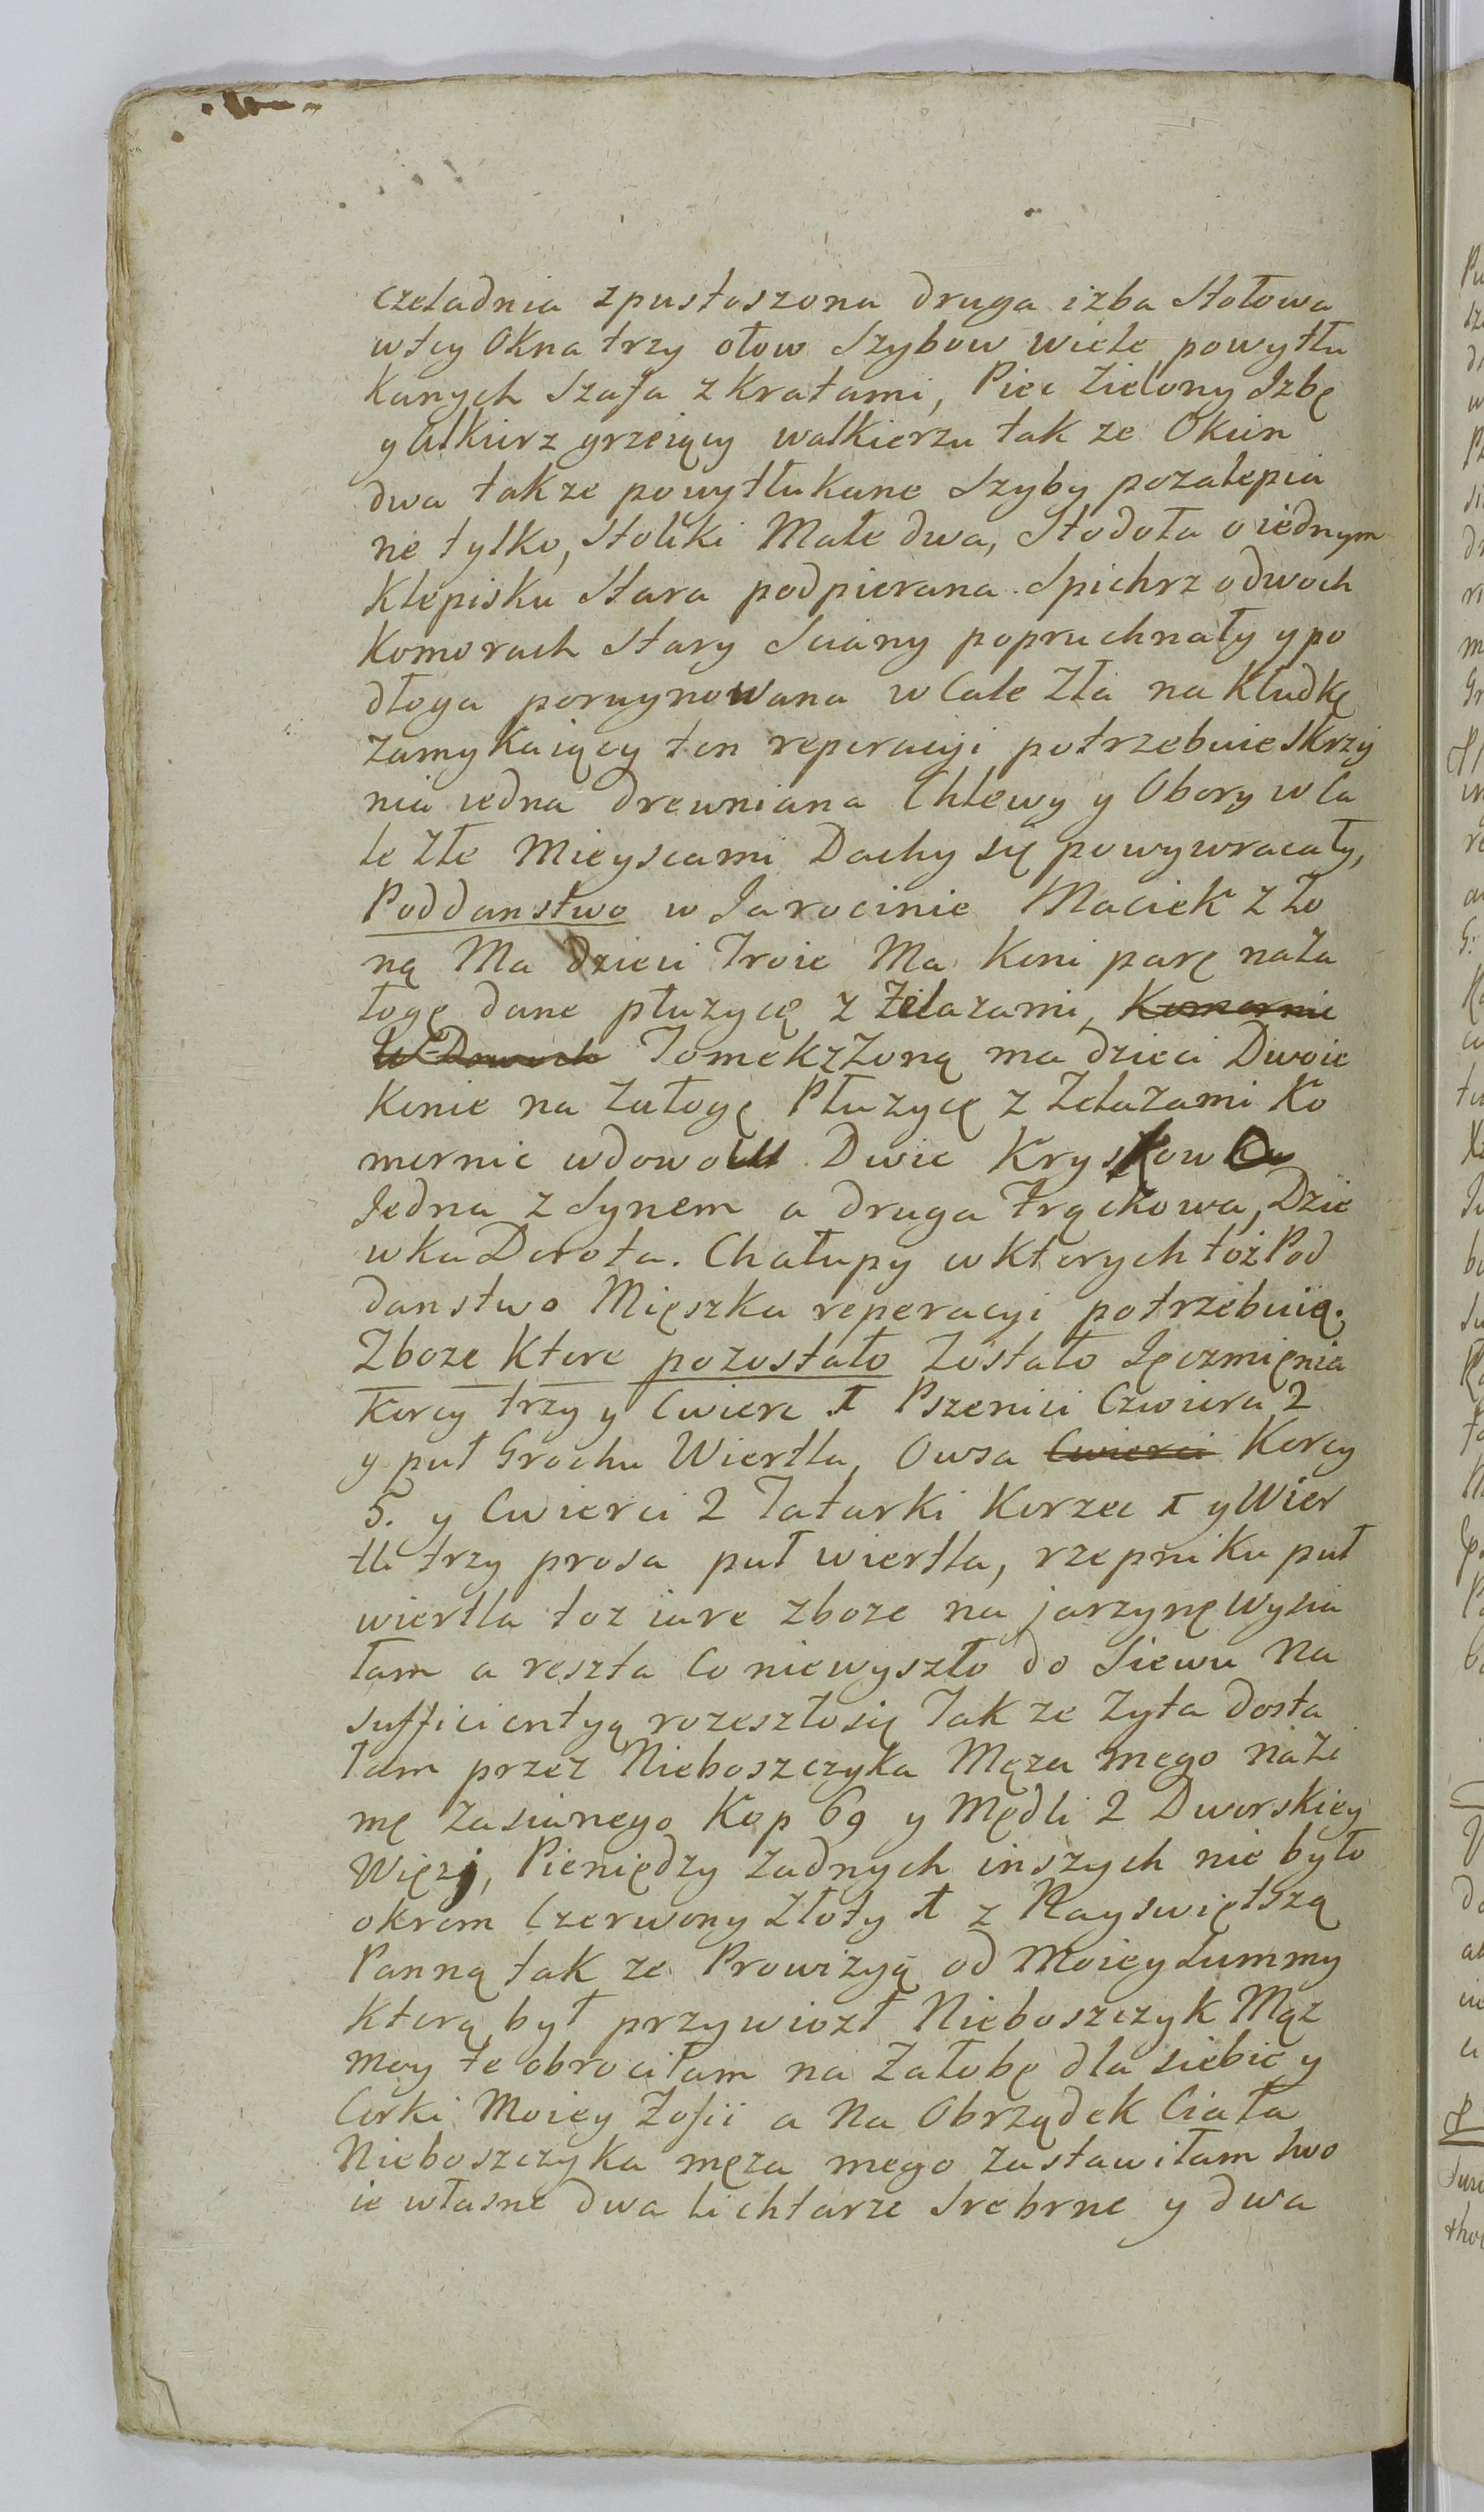 czeladnia zpustoszona druga izba Stołowa
wtcy Okna trzy ołow Szybow wiele powytłu
kanych Szafa z Kratami, Piec Zielony Izbę
y alkierz grzeiący walkierzu tak ze Okien
dwa tak ze powytłukane Szyby pozalepia
ne tylko, Stoliki Małe dwa, Stodoła o iednym
Klepisku Stara podpierana. Spichrz odwoch
Komorach Stary Sciany popruchnały y po
dłoga porujnowana w Cale Zła na Kłudkę
zamykaiący ten reperacyi potrzebuie Skrzy
nia iedna drewniana Chlewy y Obory w Ca
le Złe Mieyscami Dachy się powywracały,
Poddanstwo w Jarocinie Maciek z Zo
ną Ma Dzieci Troie Ma Koni parę na Za
łogę dane płuzycę z Żelazami, Komornic
W Dowuch Tomek z Zoną ma dzieci Dwoie
Konie na Załogę Płuzycę z Zelazami Ko
mornic wdowow Dwie Kryskowa
Jedna z Synem a druga Frąckowa, Dzie
wka Dorota. Chałupy w Ktorych toż Pod
danstwo Mięszka reperacyi potrzebuią.
Zboze Ktore pozostało Zostało Jęczmięnia
Korcy trzy y Cwierc 1 Pszenici Czwiera 2
y puł Grochu Wiertla, Owsa Cwierci Korcy
5. y Cwierci 2 Tatarki Korzec 1 y Wier
tli trzy prosa puł wiertla, rzepniku puł
wiertla toz iare zboze na jarzynę Wysia
łam a reszta Co niewyszło do Siewu Na
sufficientyą rozeszłosię Tak ze Zyta dosta
łam przez Nieboszczyka Męza mego na Zi
mę Zasianego Kop 69 y Mędli 2 Dworskiey
Więzj, Pieniędzy Zadnych inszych nie było
okrom Czerwony Złoty 1 z Nayswiętszą
Panną tak ze Prowizyą od Moiey Summy
Ktorą był przywiozł Nieboszczyk Mąz
moy te obrociłam na Załobę dla siebie y
Corki Moiey Zofii a Na Obrządek Ciała
Nieboszczyka męza mego Zastawiłam swo
ie własne dwa lichtarze Srebrne y dwa